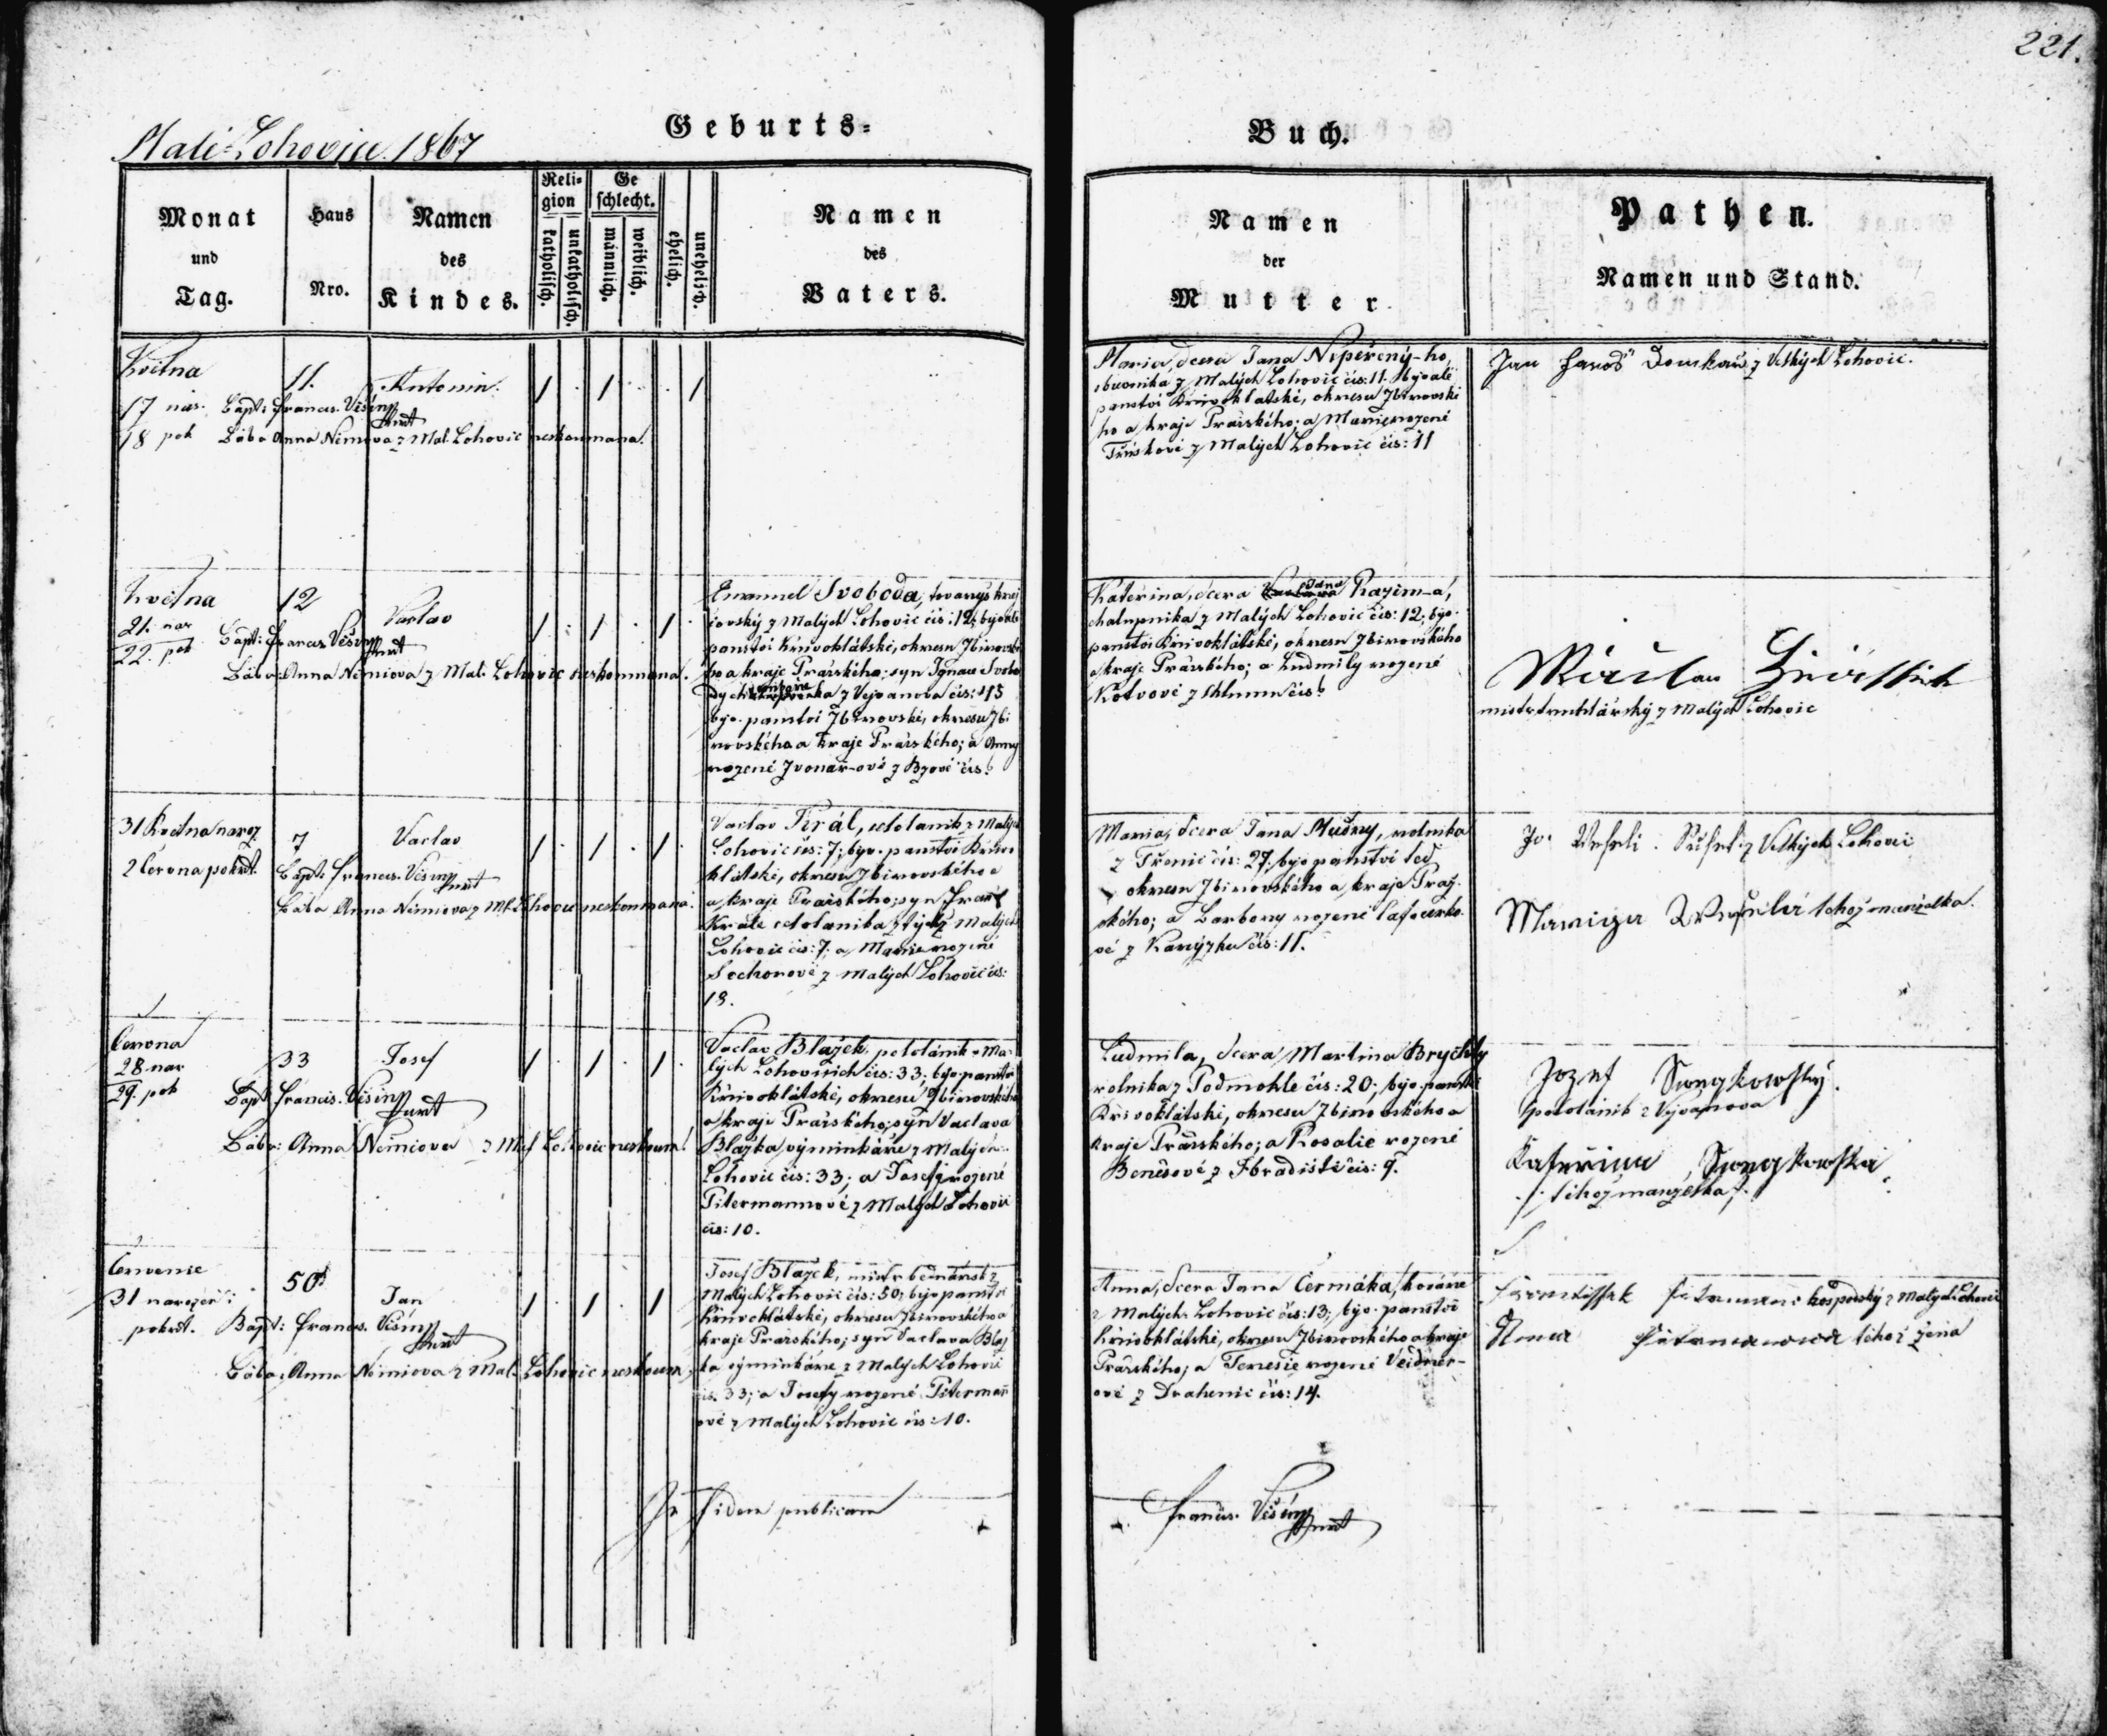 221.
Malé-Lohovice 1867
Geburts=
Buch.
Monat
und
Tag.
Haus
Nro.
Namen
des
Kindes.
Reli=
gion
katholisch.
unkatholisch.
Ge
schlecht.
männlich.
weiblich.
ehelich.
unehelich.
Namen
des
Vaters.
Namen
der
Mutter.
Pathen.
Namen und Stand.
Května
17 nar.
18 pok
11.
Antonin.
Bapt: Francis. Višíny
Bába Anna Nemiova z Mal. Lohovic neskoumana.
Maria, dcera Jana Nepeřený-ho,
z Malých Lohovic čís: 11. bývalé
panství Křivoklátské, okresu Zbirovské
ho a kraje Pražského; a Marie rozené
z Malých Lohovic čís: 11
Jan Domkař z Velkých Lohovic.
Května
21. nar
22. pok
12
Vaclav
Bapt: Francis Višíny
Bába: Anna Nemiova z Mal. Lohovic neskoumana.
Emanuel Svoboda, tovaryš krej
čovský z Malých Lohovic čís: 12; býválé
panství Křivoklátské, okresu Zbirovské
ho a kraje Pražského; syn Ignace Svobo
dy z Vejvanova čís:
býv. panství Zbirovské, okresu Zbi
rovského a kraje Pražského; a Anny
rozené Zvonař-ové z Bzové čís:
Kateřina, dcera Jana Razim-a,
chalupníka z Malých Lohovic čís: 12; býv.
panství Křivoklátské, okresu Zbirovského
a kraje Pražského; a Ludmily rozené
Kotvové z Chlumu čís:
mistr truhlářský z Malých Lohovic
31 Května naroz
2 Června pokřt.
7
Vaclav
Bapt: Francis. Višíny
Bába Anna Nemiova z Ml. Lohovic neskoumana.
Vaclav Král, celolaník z Malých
Lohovic čís: 7; býv. panství Křivo
klátské, okresu Zbirovského
a kraje Pražského; syn Fran
Krále celolaníka z tých z Malých
Lohovic čís: 7; a Marie rozené
Sochorové z Malých Lohovic čís:
18.
Maria, dcera Jana Mudry, rolníka
z Třenic čís: 27; býv panství
okresu Zbirovského a kraje Praž-
ského; a Barbory rozené
vé z Karýzku čís: 11.
z Velkých Lohovic
téhož manželka.
Června
28. nar
29. pok
33
Josef
Bapt Francis. Višíny
Bába: Anna Nemiova z Mal Lohovic neskoum:
Vaclav Blažek, pololáník z Ma-
lých Lohovicích čís: 33; býv. panství
Křivoklátské, okresu Zbirovského
a kraje Pražského; syn Vaclava
Blažka výminkáře z Malých
Lohovic čís: 33; a Josefy rozené
Pitermannové z Malých Lohovic
čís: 10.
Ludmila, dcera Martina Brychty
rolníka z Podmokle čís: 20; býv. panství
Křivoklátské, okresu Zbirovského a
kraje Pražského; a Rosalie rozené
Benešové z Hradiště čís: 9.
Jozef
pololáník z Vejvanova
Kateřina
téhož manželka
Července
31 narozen:
pokřt.
50
Jan
Bapt: Francis. Višíny
Bába: Anna Nemiova z Mal. Lohovic neskoum.
Josef Blažek, mistr bednářský z
Malých Lohovic čís: 50; býv panství
Křivoklátské, okresu Zbirovského a
kraje Pražského; syn Vaclava Blaž
ka výminkáře z Malých Lohovic
čís. 33; a Josefy rozené Piterman
ové z Malých Lohovic čís: 10.
Anna, dcera Jana Čermáka, kováře
z Malých Lohovic čís: 13; býv. panství
Křivoklátské, okresu Zbirovského a kraje
Pražského; a Teresie rozené Veidner-
ové z Drahenic čís: 14.
hospodský z Malých Lohovic
Anna téhož žena
In fidem publicam
Francis. Višíny